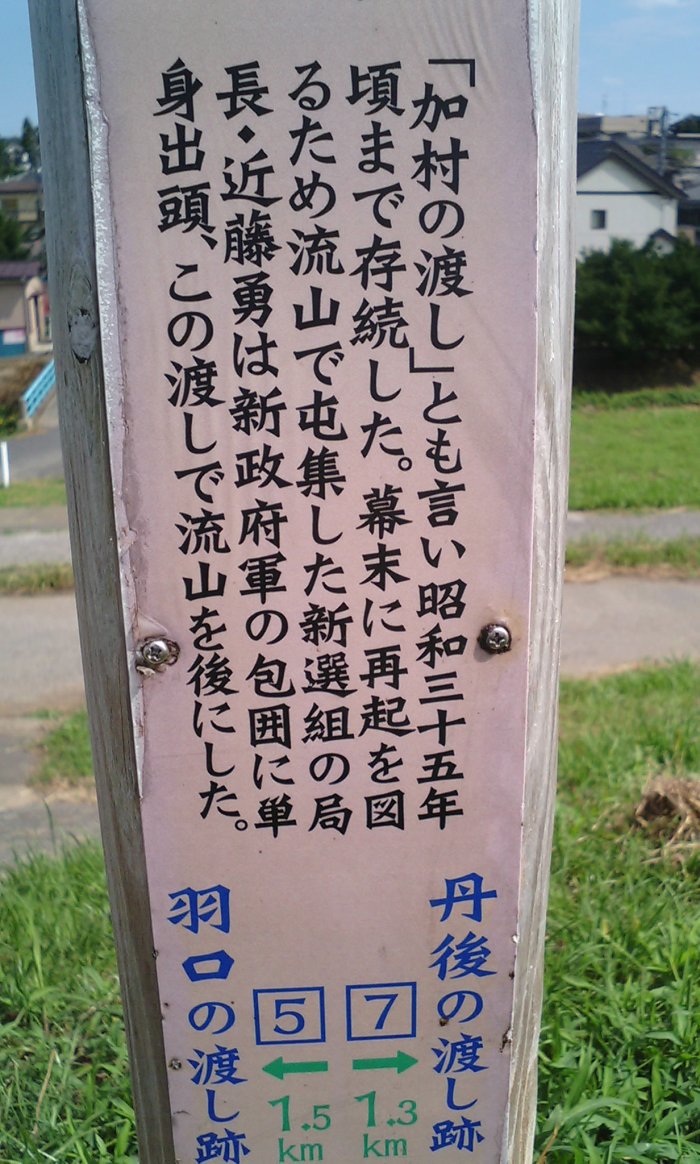 「加村の渡し」とも言い昭和三十五年
頃まで存続した。幕末に再起を図
るため流山で屯集した新選組の局
長・近藤勇は新政府軍の包囲に単
身出頭、この渡しで流山を後にした。
丹後の渡し跡
7
→
1.3
km
5
←
1.5
km
羽口の渡し跡